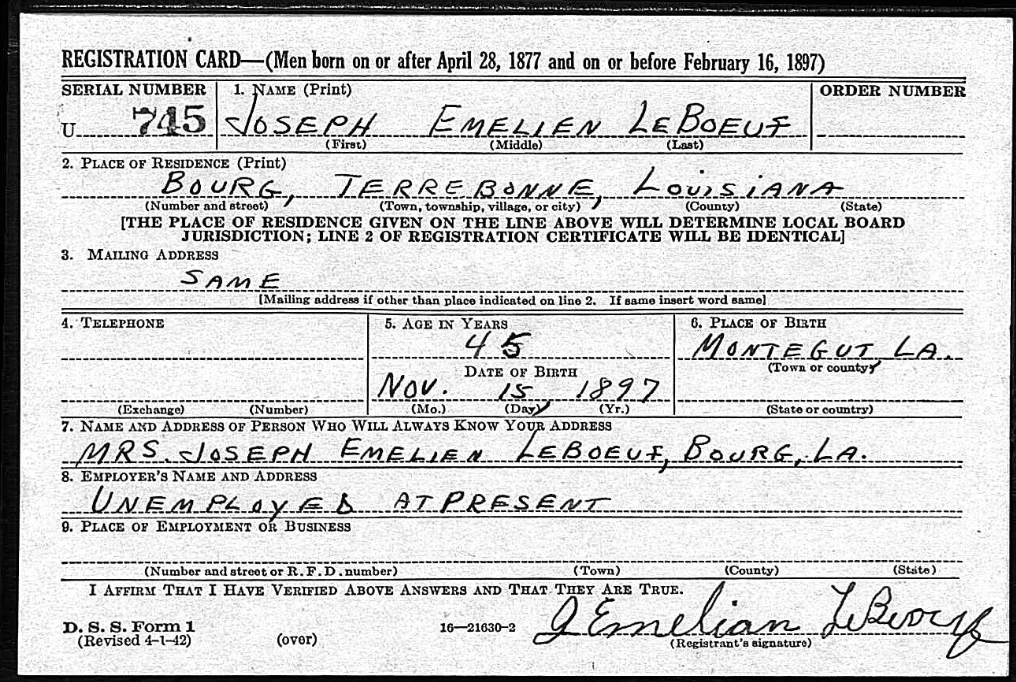 REGISTRATION CARD—(Men born on or after April 28, 1877 and on or before February 16, 1897)
SERIAL NUMBER 1. NAME (Print) ORDER NUMBER
U 745 JOSEPH EMELIEN LEBOEUF
(First) (Middle) (Last)
2. PLACE OF RESIDENCE (Print)
BOURG, TERREBONNE, LOUISIANA
(Number and street) (Town, township, village, or city) (County) (State)
[THE PLACE OF RESIDENCE GIVEN ON THE LINE ABOVE WILL DETERMINE LOCAL BOARD
JURISDICTION; LINE 2 OF REGISTRATION CERTIFICATE WILL BE IDENTICAL]
3. MAILING ADDRESS
SAME
[Mailing address if other than place indicated on line 2. If same insert word same]
4. TELEPHONE 5. AGE IN YEARS 6. PLACE OF BIRTH
45 MONTEGUT, LA.
DATE OF BIRTH (Town or county)
NOV. 15 1897
(Exchange) (Number) (Mo.) (Day) (Yr.) (State or country)
7. NAME AND ADDRESS OF PERSON WHO WILL ALWAYS KNOW YOUR ADDRESS
MRS. JOSEPH EMELIEN LEBOEUF, BOURG, LA.
8. EMPLOYER'S NAME AND ADDRESS
UNEMPLOYED AT PRESENT
9. PLACE OF EMPLOYMENT OR BUSINESS
(Number and street or R. F. D. number) (Town) (County) (State)
I AFFIRM THAT I HAVE VERIFIED ABOVE ANSWERS AND THAT THEY ARE TRUE.
D. S. S. Form 1
(Revised 4-1-42) (over) 16—21630-2 J Emelian LeBoeuf
(Registrant's signature)